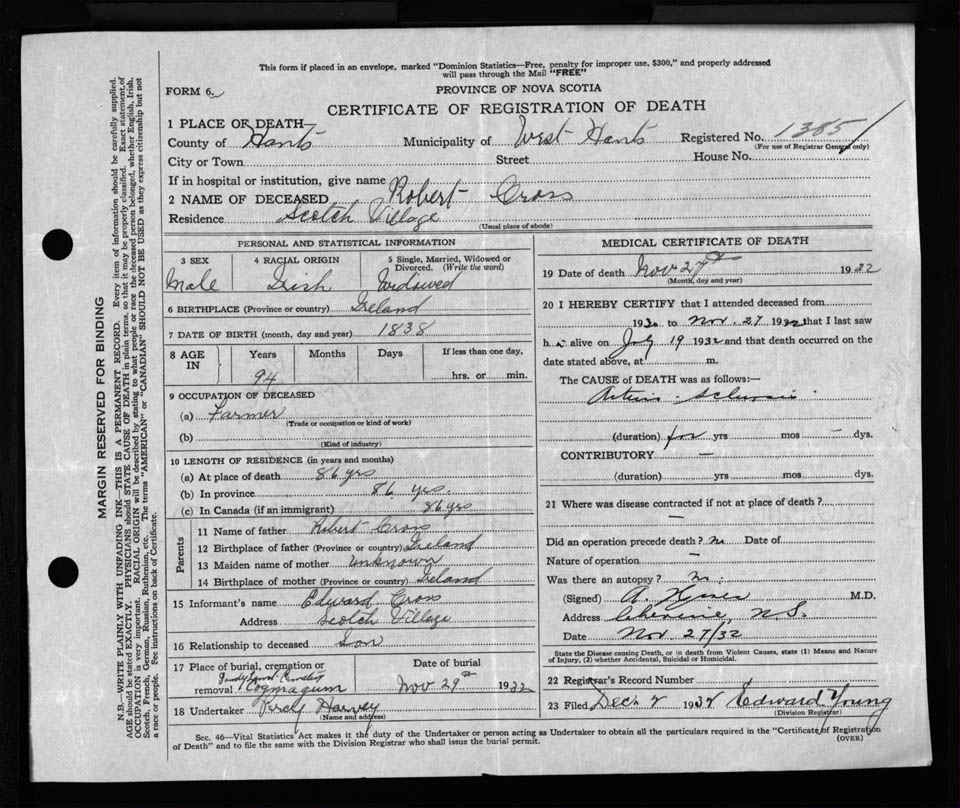 This form if placed in an envelope, marked "Dominion Statistics—Free, penalty for improper use, $300," and properly addressed
will pass through the Mail "FREE"
FORM 6.
PROVINCE OF NOVA SCOTIA
CERTIFICATE OF REGISTRATION OF DEATH
1 PLACE OF DEATH
County of Hants Municipality of West Hants Registered No. 1385
(For use of Registrar General only)
City or Town Street House No.
If in hospital or institution, give name
2 NAME OF DECEASED Robert Cross
Residence Scotch Village
(Usual place of abode)
PERSONAL AND STATISTICAL INFORMATION
3 SEX 4 RACIAL ORIGIN 5 Single, Married, Widowed or Divorced. (Write the word)
Male Irish Widowed
6 BIRTHPLACE (Province or country) Ireland
7 DATE OF BIRTH (month, day and year) 1838
8 AGE IN Years Months Days If less than one day,
94 hrs. or min.
9 OCCUPATION OF DECEASED
(a) Farmer
(Trade or occupation or kind of work)
(b)
(Kind of industry)
10 LENGTH OF RESIDENCE (in years and months)
(a) At place of death 86 yrs
(b) In province 86 yrs.
(c) In Canada (if an immigrant) 86 yrs
Parents
11 Name of father Robert Cross
12 Birthplace of father (Province or country) Ireland
13 Maiden name of mother unknown
14 Birthplace of mother (Province or country) Ireland
15 Informant's name Edward Cross
Address Scotch Village
16 Relationship to deceased Son
17 Place of burial, cremation or Date of burial
removal Cogmagum Nov 29th 1932
18 Undertaker Percy Harvey
(Name and address)
MEDICAL CERTIFICATE OF DEATH
19 Date of death Nov 27th 1932
(Month, day and year)
20 I HEREBY CERTIFY that I attended deceased from
193 to Nov. 27 1932 that I last saw
h alive on July 19 1932 and that death occurred on the
date stated above, at m.
The CAUSE of DEATH was as follows:—
(duration) yrs mos – dys.
CONTRIBUTORY –
(duration) yrs mos dys.
21 Where was disease contracted if not at place of death?
–
Did an operation precede death? Date of
Nature of operation –
Was there an autopsy?
(Signed) A. M.D.
Address N.S.
Date Nov. 27/32
State the Disease causing Death, or in death from Violent Causes, state (1) Means and Nature
of Injury, (2) whether Accidental, Suicidal or Homicidal.
22 Registrar's Record Number
23 Filed Dec. 2 1932 Edward Young
(Division Registrar)
Sec. 46—Vital Statistics Act makes it the duty of the Undertaker or person acting as Undertaker to obtain all the particulars required in the "Certificate of Registration
of Death" and to file the same with the Division Registrar who shall issue the burial permit. (OVER)
MARGIN RESERVED FOR BINDING
N.B.—WRITE PLAINLY WITH UNFADING INK—THIS IS A PERMANENT RECORD. Every item of information should be carefully supplied.
AGE should be stated EXACTLY. PHYSICIANS should STATE CAUSE OF DEATH in plain terms, so that it may be properly classified. Exact statement of
OCCUPATION is very important. RACIAL ORIGIN will be described by stating to what people or race the deceased person belonged, whether English, Irish,
Scotch, French, German, Russian, Ruthenian, etc. The terms "AMERICAN" or "CANADIAN" SHOULD NOT BE USED as they express citizenship but not
a race or people. See instructions on back of Certificate.